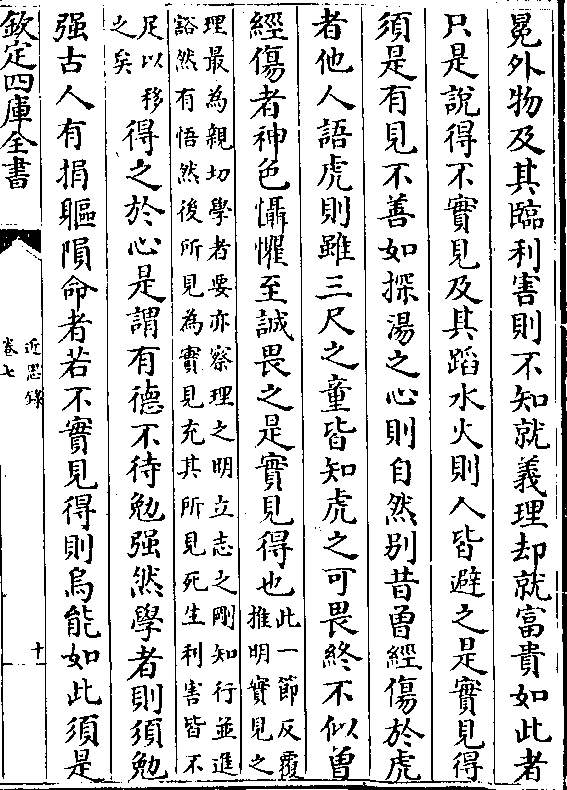 冕外物及其臨利害則不知就義理却就富貴如此者
只是說得不實見及其蹈水火則人皆避之是實見得
須是有見不善如探湯之心則自然别昔曾經傷於虎
者他人語虎則雖三尺之童皆知虎之可畏終不似曾
經傷者神色懾懼至誠畏之是實見得也
此一節反覆
推明實見之
理最為親切學者要亦察理之明立志之剛知行並進
豁然有悟然後所見為實見充其所見死生利害皆不
足以移
之矣
得之於心是謂有德不待勉强然學者則須勉
强古人有捐軀隕命者若不實見得則烏能如此須是
欽定四庫全書
近思錄
卷七
十